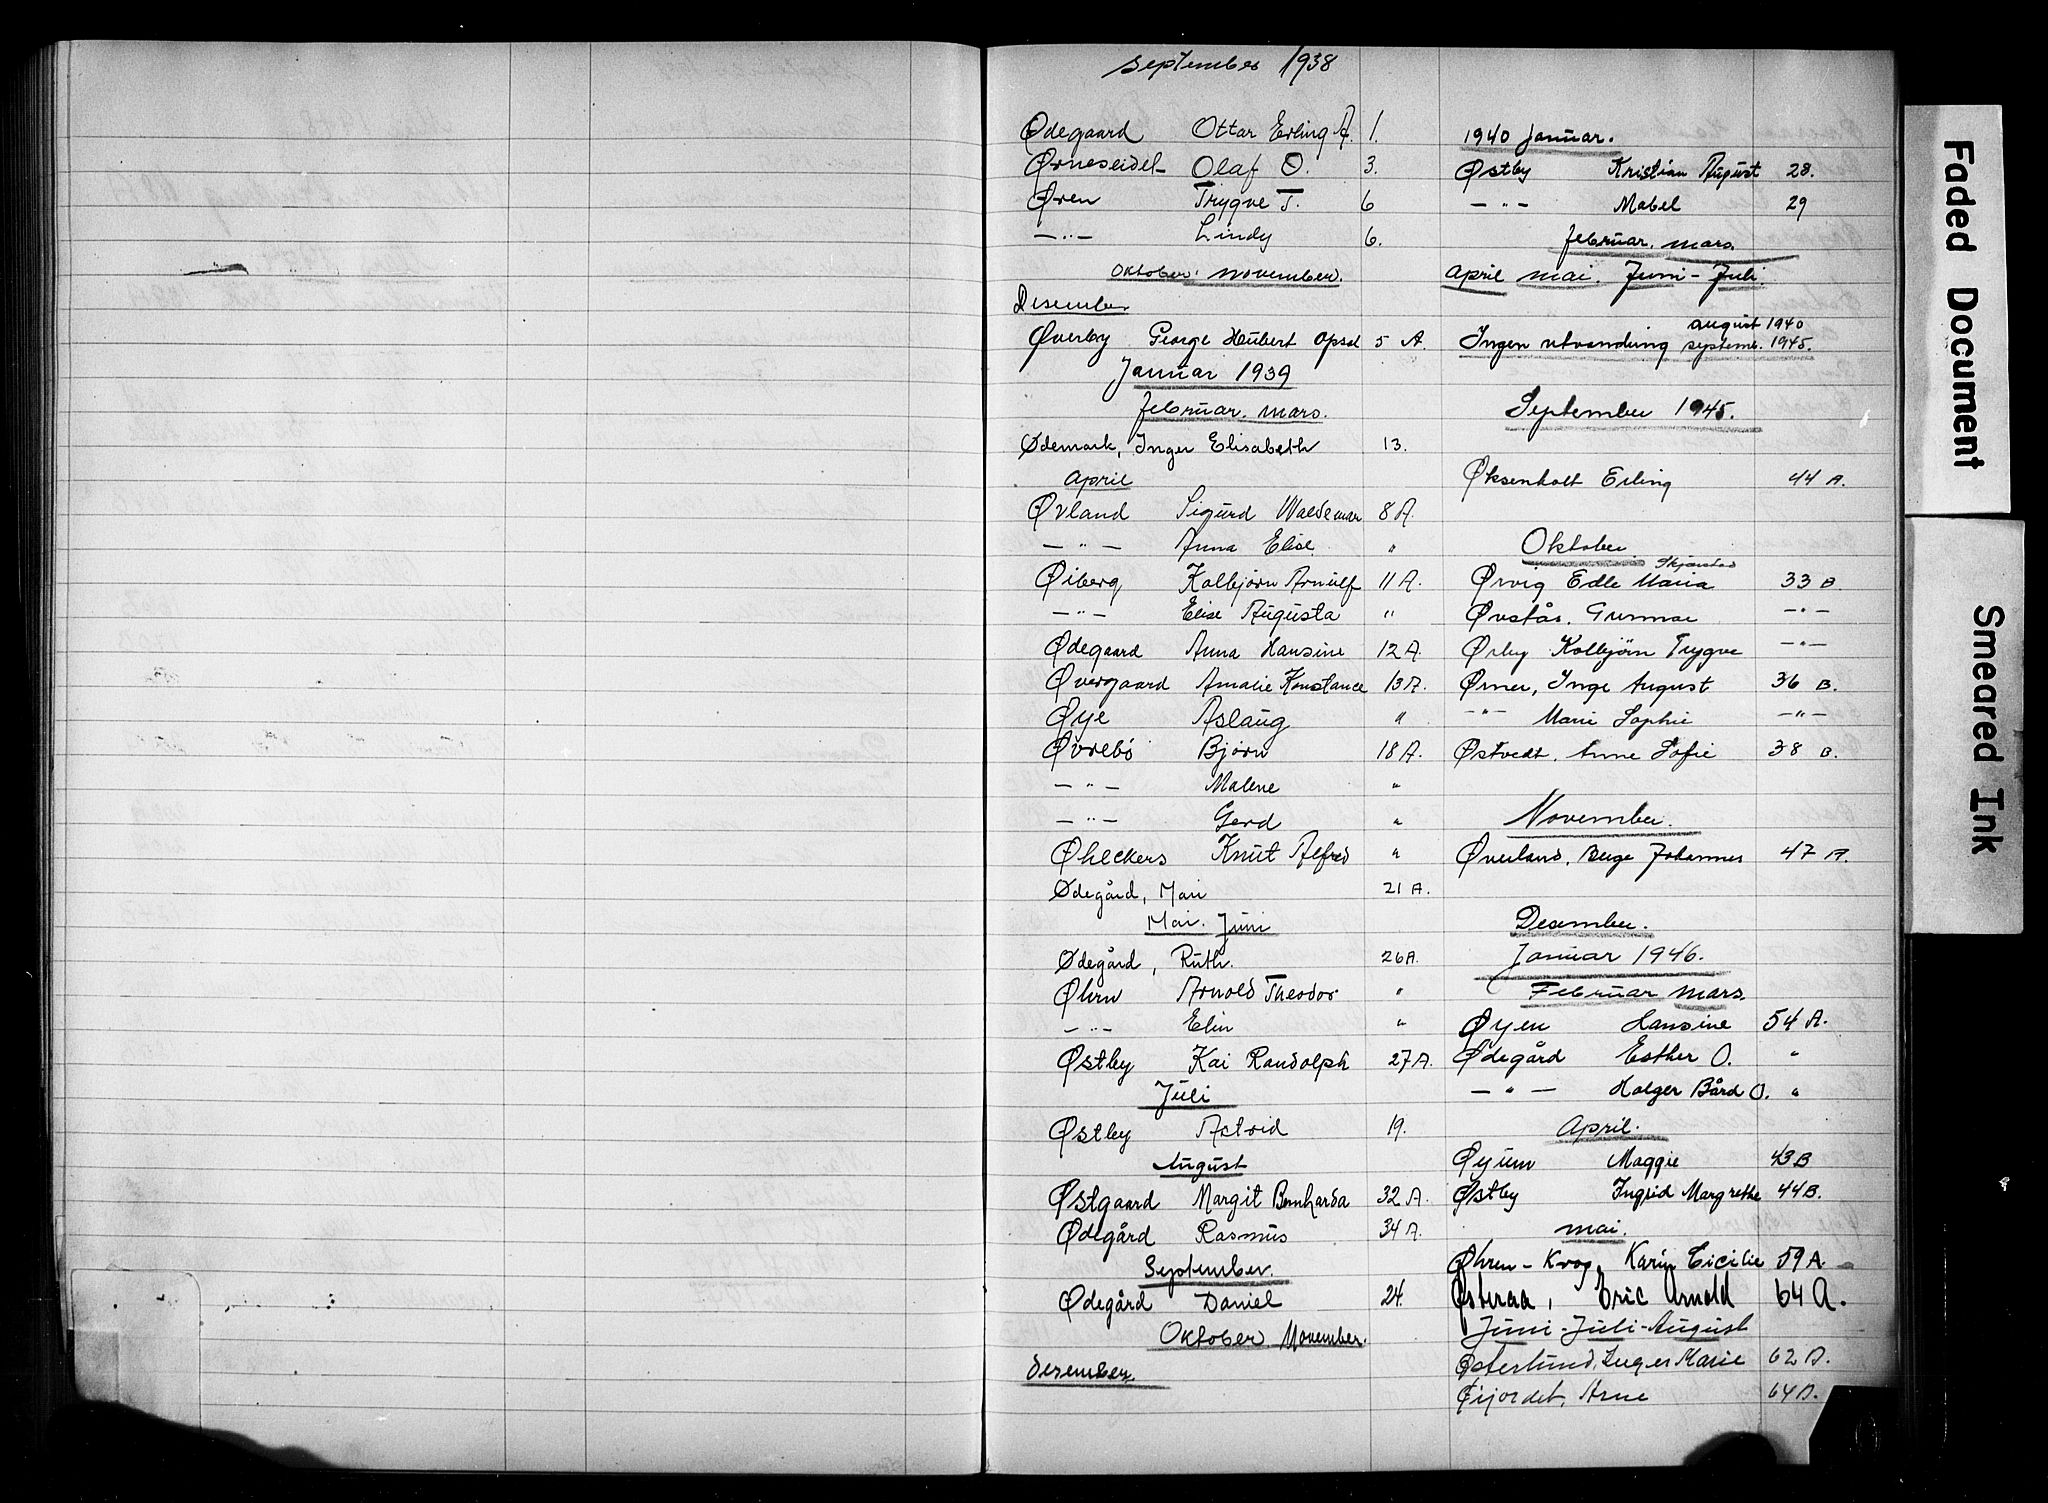 September 1938
Ødegaard Ottar Erling A. 1.
Ørneseidet Olaf O. 3.
Øren Trygve T. 6
— " — Lindy 6.
Oktober. November.
Desember
Øverby George Hubert Opsal 5 A.
Januar 1939
Februar. Mars.
Ødemark, Inger Elisabeth 13.
April
Øvland Sigurd Waldemar 8 A.
— " — Anna Elise "
Øiberg Kolbjørn Arnulf 11 A.
— " — Elise Augusta "
Ødegaard Anna Hansine 12 A.
Øvergaard Amalie Konstance 13 A.
Øye Aslaug "
Øvrebö Bjørn 18 A.
— " — Malene "
— " — Gerd "
Øheckers Knut Alfred "
Ødegård, Mari 21 A.
Mai. Juni
Ødegård, Ruth. 26 A.
Øhrn Arnold Theodor "
— " — Elin "
Østby Kai Randolph 27 A.
Juli
Østby Astrid 19.
August
Østgaard Margit Bernharda 32 A.
Ødegård Rasmus 34 A.
September.
Ødegård Daniel 24.
Oktober. November.
Desember.
1940 Januar.
Østby Kristian August 28.
— " — Mabel 29
Februar. Mars.
April Mai. Juni - Juli.
august 1940
Ingen utvandring septemb. 1945.
September 1945.
Øksenholt Erling 44 A.
Oktober
Skjærstad
Ørvig Edle Maria 33 B
Øvstås. Gunnar — " —
Ørby Kolbjörn Trygve — " —
Ørner, Inge August 36 B.
— " — Marie Sophie — " —
Østvedt. Anne Sofie 38 B.
November.
Øverland, Berge Johannes 47 A.
Desember.
Januar 1946.
Februar Mars.
Øyen Hansine 54 A.
Ødegård Esther O. "
— " — Holger Bård O. "
April.
Øyum Maggie 43 B
Østby Ingrid Margrethe 44 B.
Mai.
Øhren - Krog, Karin Cicilie 59 A.
Østeraa, Eric Arnold 64 A.
Juni - Juli - August
Østerlund, Inger Marie 62 A.
Øijordet, Arne 64 A.
Faded Document
Smeared Ink